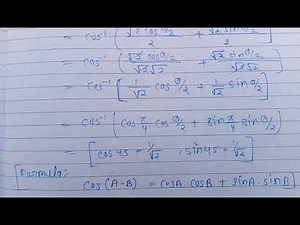 = cos⁻¹ ( √2 cos θ/2 / 2 + √2 sin θ/2 / 2 )
= cos⁻¹ ( √2 cos θ/2 / √2 √2 + √2 sin θ/2 / √2 √2 )
= cos⁻¹ [ 1/√2 cos θ/2 + 1/√2 sin θ/2 ]
= cos⁻¹ ( cos π/4 cos θ/2 + sin π/4 sin θ/2 )
= [ cos 45 = 1/√2 , sin 45 = 1/√2 ]
Formula:
cos (A-B) = cosA . cosB + sinA . sinB